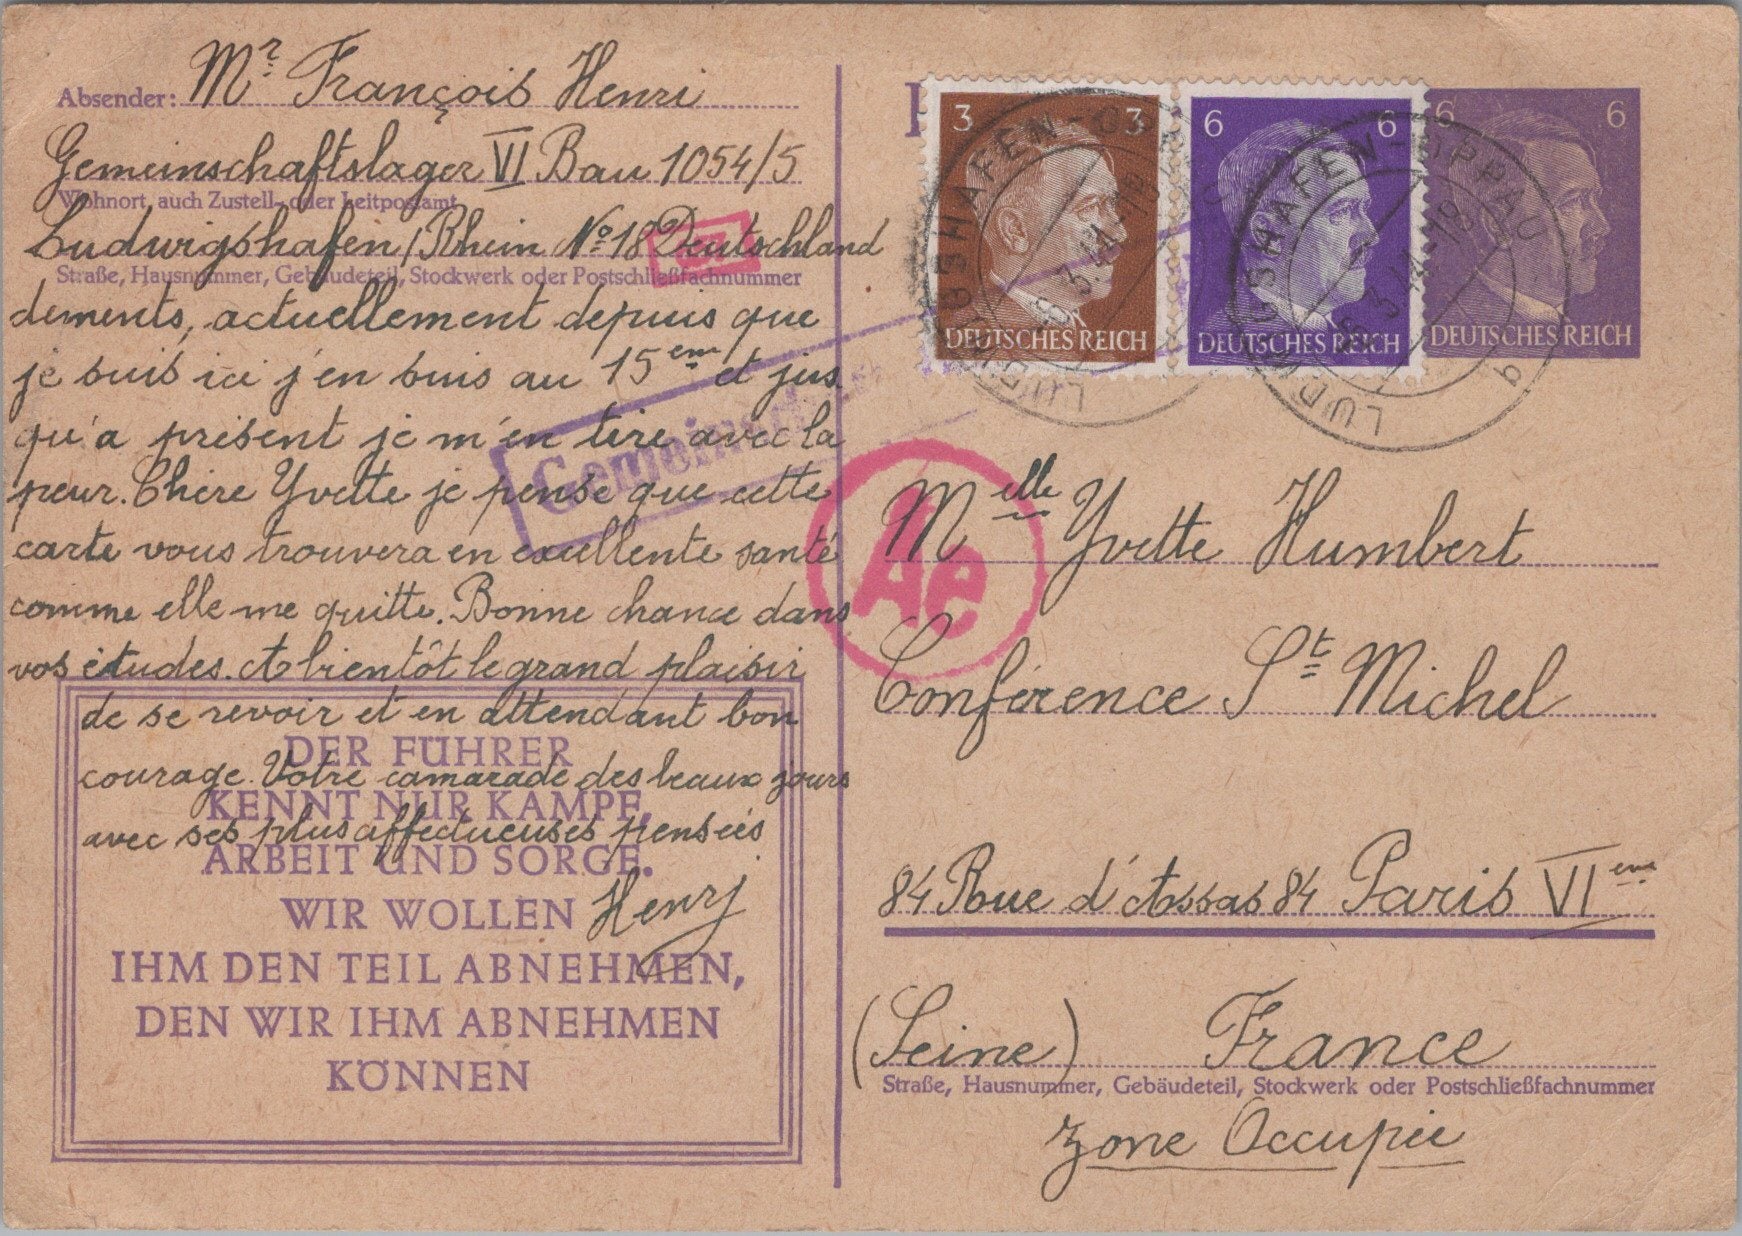 Absender: Mr François Henri
Gemeinschaftslager VI Bau 1054/5
Wohnort, auch Zustell- oder Leitpostamt
Ludwigshafen/Rhein No 18 Deutschland
Straße, Hausnummer, Gebäudeteil, Stockwerk oder Postschließfachnummer
dements, actuellement depuis que
je suis ici j'en suis au 15em et jus
qu'a présent je m'en tire avec la
peur. Chère Yvette je pense que cette
carte vous trouvera en excellente santé
comme elle me quitte. Bonne chance dans
vos études. A bientôt le grand plaisir
de se revoir et en attendant bon
courage. Votre camarade des beaux jours
avec ses plus affectueuses pensées
Henry
DER FÜHRER
KENNT NUR KAMPF,
ARBEIT UND SORGE.
WIR WOLLEN
IHM DEN TEIL ABNEHMEN,
DEN WIR IHM ABNEHMEN
KÖNNEN
P
3 3
DEUTSCHES REICH
6 6
DEUTSCHES REICH
6 6
DEUTSCHES REICH
LUDWIGSHAFEN-OPPAU
b
Ae
Melle Yvette Humbert
Conférence St Michel
84 Rue d'Assas 84 Paris VIeme
(Seine) France
Straße, Hausnummer, Gebäudeteil, Stockwerk oder Postschließfachnummer
Zone Occupée